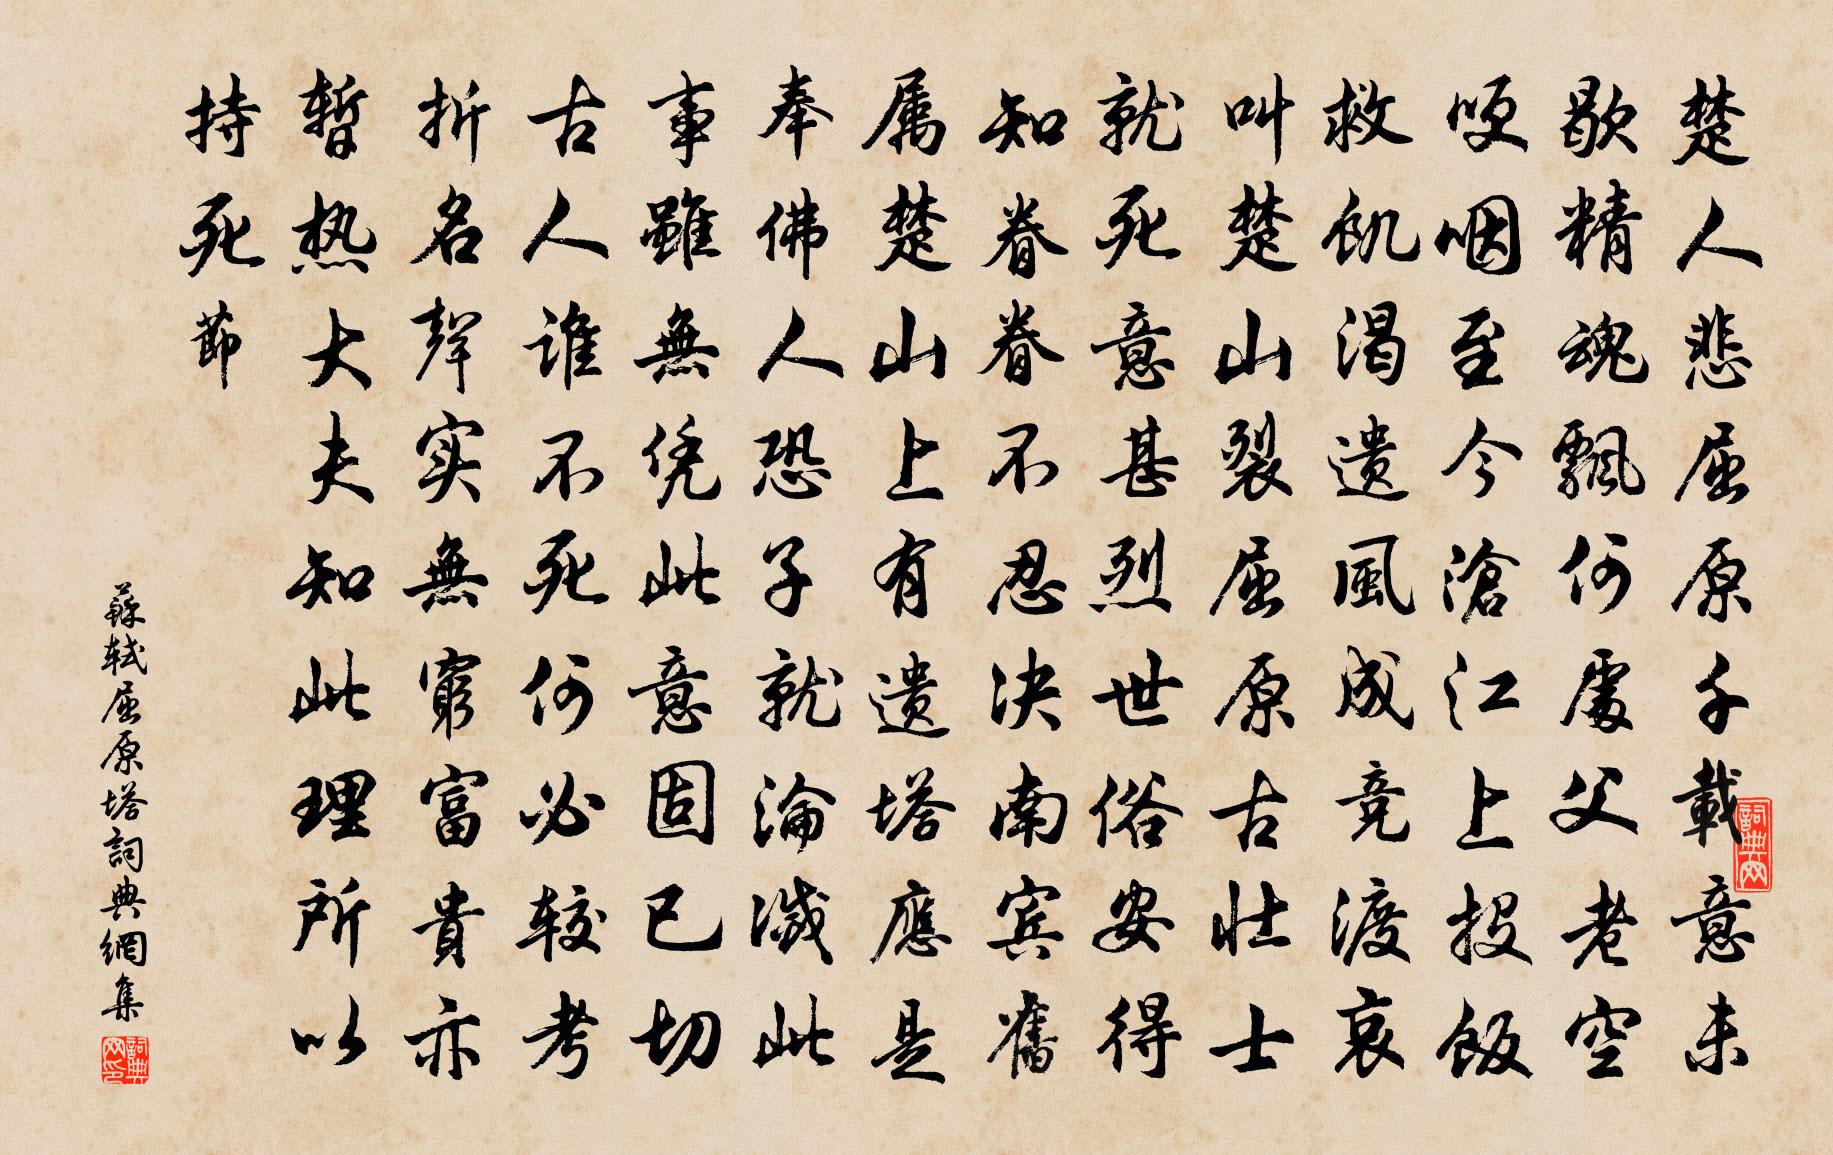 楚人悲屈原千載意未
歇精魂飄何處父老空
哽咽至今滄江上投飯
救飢渴遺風成竞渡哀
叫楚山裂屈原古壯士
就死意甚烈世俗安得
知眷眷不忍決南宾舊
属楚山上有遺塔應是
奉佛人恐子就淪滅此
事雖無凭此意固已切
古人谁不死何必较考
折名聲实無窮富貴亦
暫热大夫知此理所以
持死節
蘇轼屈原塔詞典網集
詞典网
詞典网印